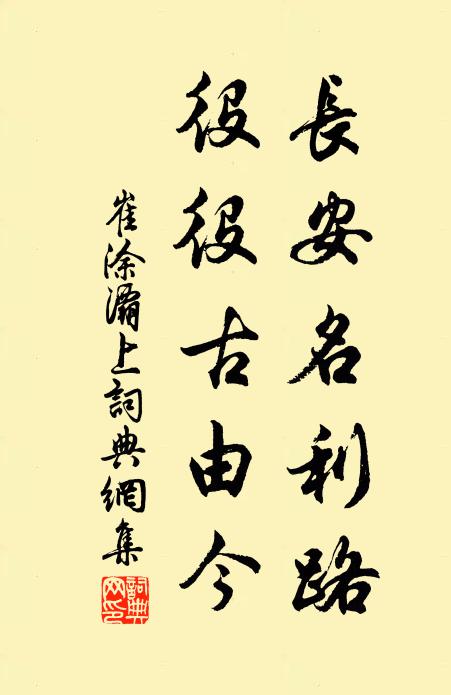 長安名利路
役役古由今
崔涂灞上詞典網集
詞典網印